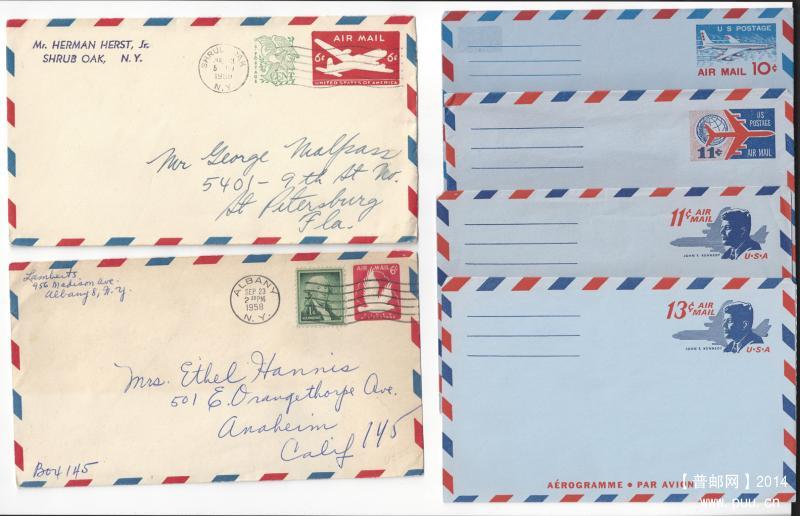 Mr. HERMAN HERST, Jr.
SHRUB OAK, N. Y.
SHRUB OAK
1958
N.Y.
AIR MAIL
6¢ 6¢
UNITED STATES OF AMERICA
Mr George Malpass
5401- 9th St No.
St Petersburg
Fla.
Lamberts
956 Madison Ave.
Albany 8, N.Y.
ALBANY
SEP 23
2 PM
1958
N.Y.
AIR MAIL 6¢
Mrs. Ethel Hannis
501 E. Orangethorpe Ave.
Anaheim
Calif 145
Box 145
US POSTAGE
AIR MAIL 10¢
US
POSTAGE
11¢ AIR MAIL
11¢ AIR
MAIL
JOHN F. KENNEDY
U·S·A
13¢ AIR
MAIL
JOHN F. KENNEDY
U·S·A
AÉROGRAMME • PAR AVION
【普邮网】2014
www.puu.cn